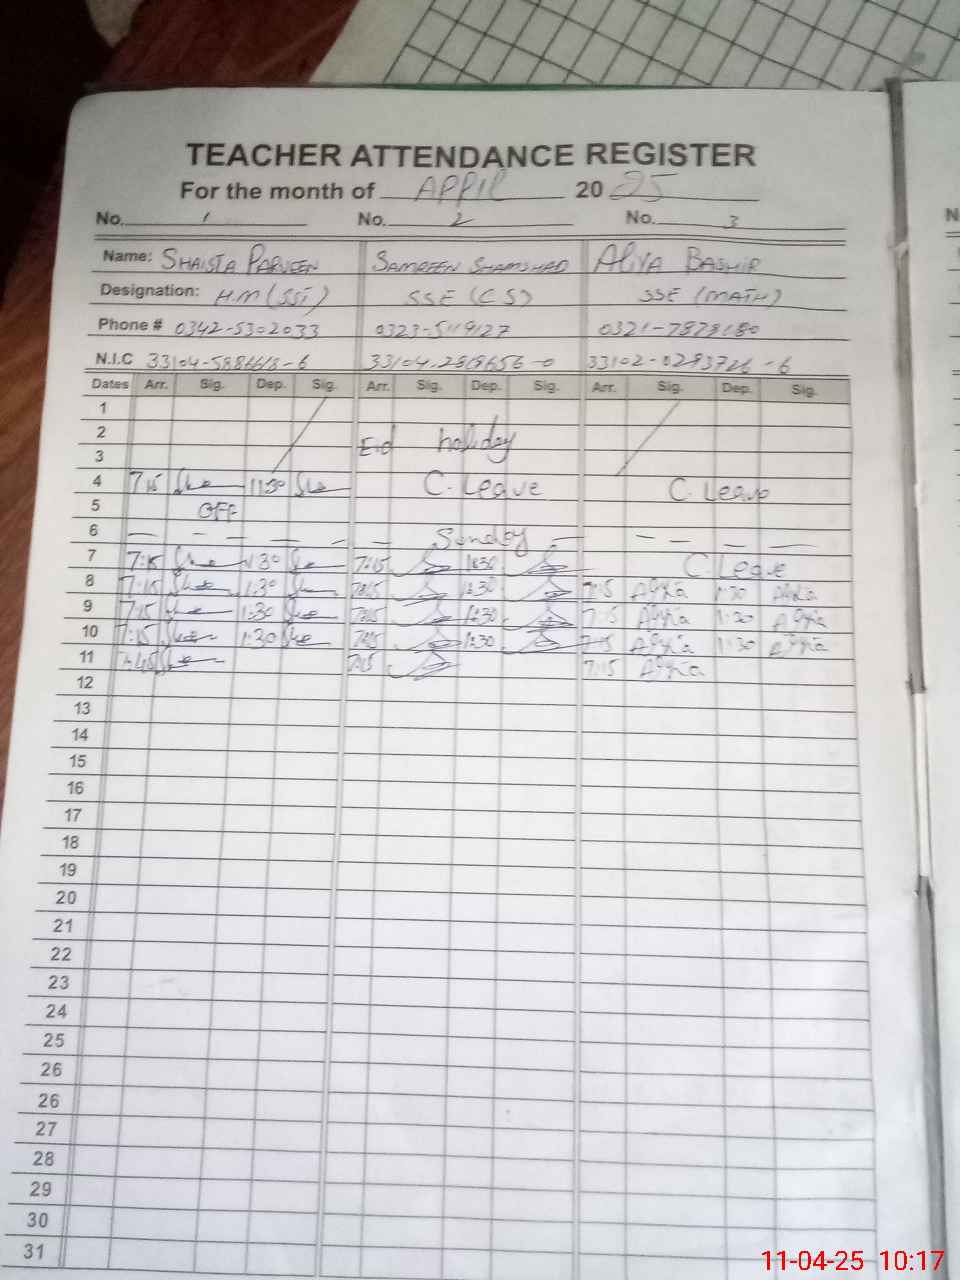 TEACHER ATTENDANCE REGISTER
For the month of APPIL 20 25
No. 1 No. 2 No. 3
Name: SHAISTA PARVEEN SAMREEN SHAMSHAD ALIYA BASHIR
Designation: H.M (SST) SSE (CS) SSE (MATH)
Phone # 0342-5302033 0323-5119127 0321-7878180
N.I.C 33104-5886618-6 33104-2818656-0 33102-0293726-6
Dates Arr. Sig. Dep. Sig. Arr. Sig. Dep. Sig. Arr. Sig. Dep. Sig.
1
2 Eid holiday
3
4 7:15 1:30 C. Leave C. Leave
5 OFF
6 — — — — — — Sunday — — — — —
7 7:15 1:30 7:15 1:30 C. Leave
8 7:15 1:30 7:15 1:30 7:15 1:30
9 7:15 1:30 7:15 1:30 7:15 1:30
10 7:15 1:30 7:15 1:30 7:15 1:30
11 7:45 7:15 7:15
12
13
14
15
16
17
18
19
20
21
22
23
24
25
26
26
27
28
29
30
31
N
11-04-25 10:17